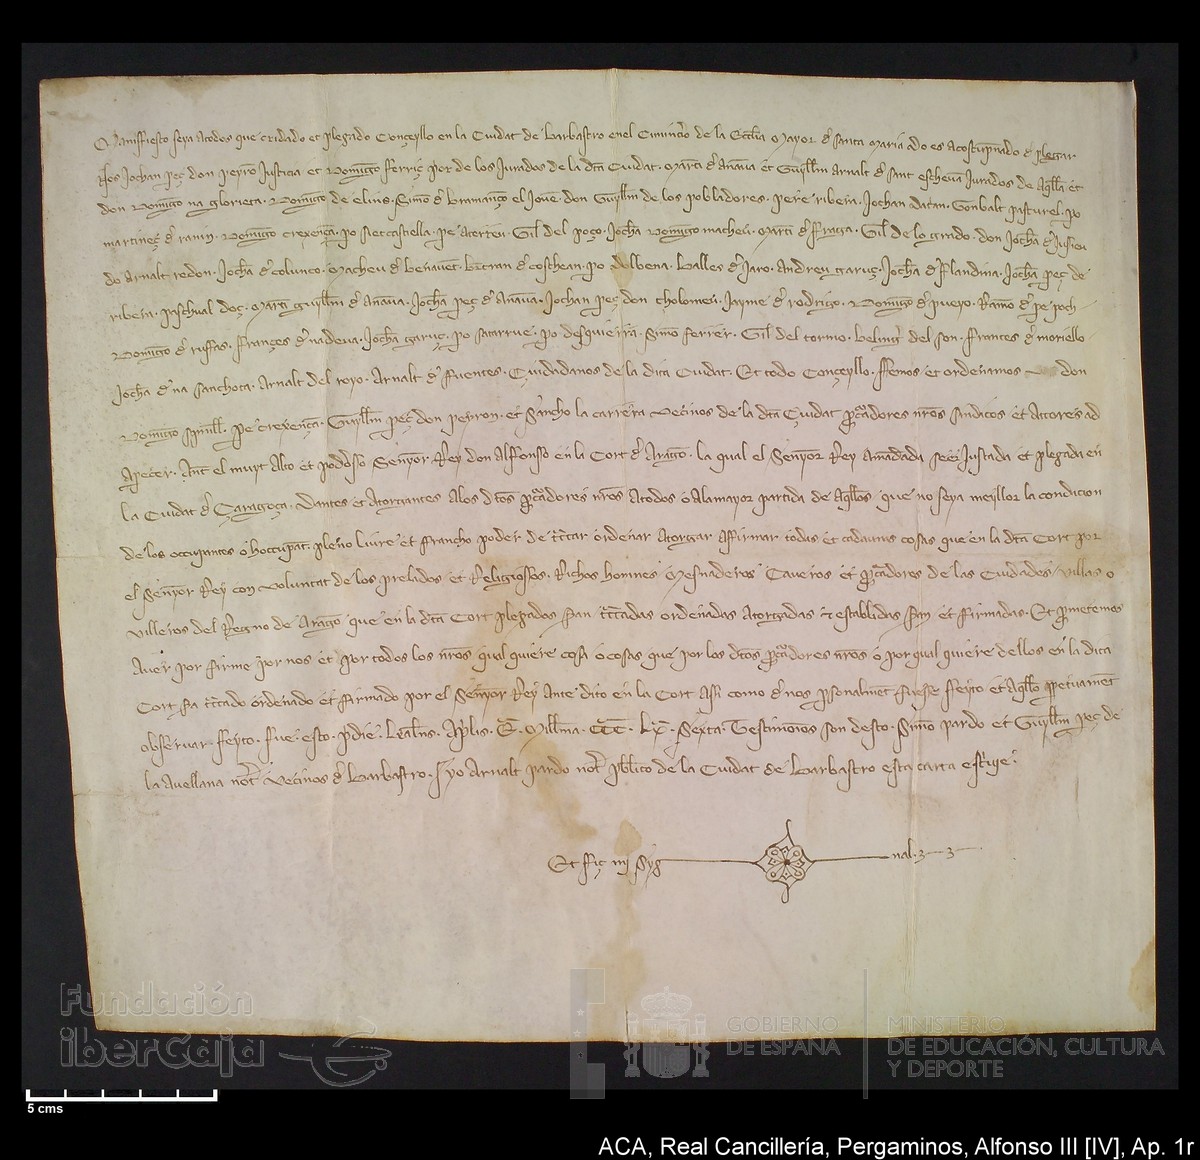 Manifiesto seya atodos que cridado et plegado Conçeyllo en la Ciudat de Barbastro enel Ciminterio de la Eccl'ia mayor d' santa maria do es acostupnado d' plegar
nos Johan peç don peyro Justicia et Domingo ferriç de los Jurados de la dta Ciudat. Marti d' anaua et Guyll'm arnalt d' sant esteuan Jurados de aq'lla et
don Domingo na glorieta. Domingo de elins. Simo d' bramanço el Joue. don Guyll'm de los pobladores. pere ribera. Johan datan. Gonbalt pasturel. po
martineç d' ranin. Domingo crexença. po siet castiella. pe acerten. Gil del poço. Joch'a Domingo macheu. Marti d' fraga. Gil de lo grado. don Joch'a d' Juseu
do arnalt redon. Joch'a d' colunco. Macheu d' benauent. Bt'ran d' costhean. po dolbena. Balles d' Jaro. Andreu garuç. Joch'a d' flandina. Joch'a peç de
ribera. paschual doç. Marti guyll'm d' anaua. Joch'a peç d' anaua. Johan peç don tholomeu. Jayme d' rodrigo. Domingo d' pueyo. Ramo d' pe poch
Domingo d' ruffas. françes d' nadeua. Joch'a garuç. po satarrue. po desquierra. Simo ferrer. Gil del torno. beleng' del son. frances d' moriello
Joch'a d' na sanchota. Arnalt del royo. Arnalt d' fuentes. Çiudadanos de la dita Ciudat. Et todo Conçeyllo. ffemos et ordenamos don
Domingo spinell. pe crexença. Guyll'm peç don peyron. et Sancho la carrera vecinos de la dta Çiudat p'curadores n'ros sindicos et actores ad
apecer. Ant el muyt alto et poderoso senyor Rey don alfonso en la Cort d' Arago. la qual el Senyor Rey a mandada seer justada et plegada en
la Ciudat d' Çaragoça. dantes et atorgantes alos d'tos p'curadores n'ros atodos o alamayor partida de aq'llos que no seya meyllor la condicion
de los occupantes o hoccupant. pleno liure et francho poder de t'ctar ordenar atorgar affirmar todas et cadaunas cosas que en la dta Cort por
el senyor Rey con voluntat de los prelados et Religiosos. Richos hommes mesnaderos caueros et p'curadores de las Ciudades villas o
villeros del Regno de Arago que en la dta Cort plegados fan t'ctadas ordenadas atorgadas et establidas fan et firmadas. Et p'metemos
auer por firme por nos et por todos los n'ros qual quiere cosa o cosas que por los d'tos p'curadores n'ros o por qual quiere dellos en la dita
Cort fa t'ctado ordenado et ffirmado por el senyor Rey ante dito en la Cort assi como d' nos p'sonalment fuesse feyto et aq'llo p'petuament
obseruar feyto. fue esto. p'die kal'ns. Ap'lis. E. Mill'ma. CCC. LX. Sexta. Testimonios son desto. Simo pardo et Guyll'm peç de
la auellana not' vecinos d' Barbastro. yo Arnalt pardo not' publico de la Ciudat de Barbastro esta carta escriuie.
Et fiç mi syg nal.
Fundación
iberCaja
GOBIERNO
DE ESPAÑA
MINISTERIO
DE EDUCACIÓN, CULTURA
Y DEPORTE
5 cms
ACA, Real Cancillería, Pergaminos, Alfonso III [IV], Ap. 1r